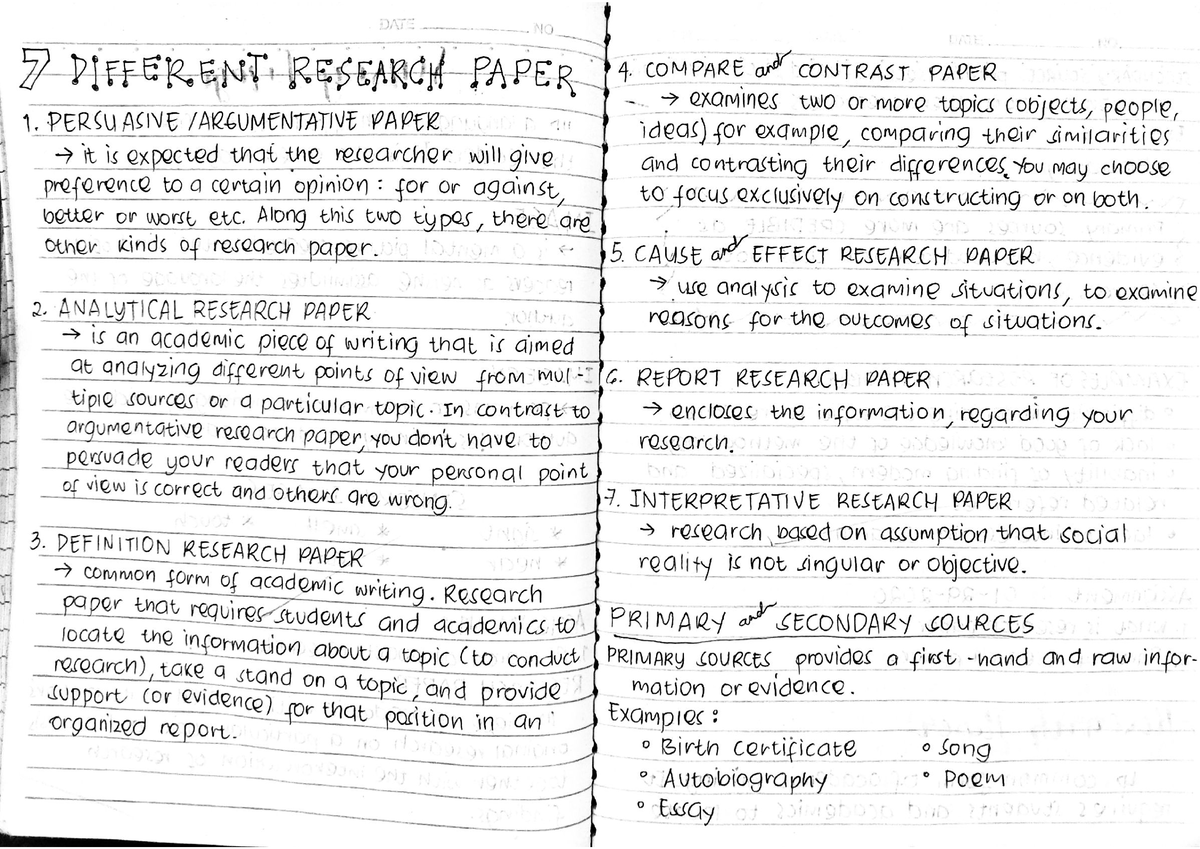 DATE NO
7 DIFFERENT RESEARCH PAPER
1. PERSUASIVE /ARGUMENTATIVE PAPER
→ it is expected that the researcher will give
preference to a certain opinion : for or against,
better or worst etc. Along this two types, there are
other kinds of research paper.
2. ANALYTICAL RESEARCH PAPER
→ is an academic piece of writing that is aimed
at analyzing different points of view from mul-
tiple sources or a particular topic. In contrast to
argumentative research paper, you don't have to
persuade your readers that your personal point
of view is correct and others are wrong.
3. DEFINITION RESEARCH PAPER
→ common form of academic writing. Research
paper that requires students and academics to
locate the information about a topic (to conduct
research), take a stand on a topic, and provide
support (or evidence) for that position in an
organized report.
4. COMPARE and CONTRAST PAPER
→ examines two or more topics (objects, people,
ideas) for example, comparing their similarities
and contrasting their differences. You may choose
to focus exclusively on constructing or on both.
5. CAUSE and EFFECT RESEARCH PAPER
→ use analysis to examine situations, to examine
reasons for the outcomes of situations.
6. REPORT RESEARCH PAPER
→ encloses the information, regarding your
research.
7. INTERPRETATIVE RESEARCH PAPER
→ research based on assumption that social
reality is not singular or objective.
PRIMARY and SECONDARY SOURCES
PRIMARY SOURCES provides a first-hand and raw infor-
mation or evidence.
Examples :
° Birth certificate ° Song
° Autobiography ° Poem
° Essay